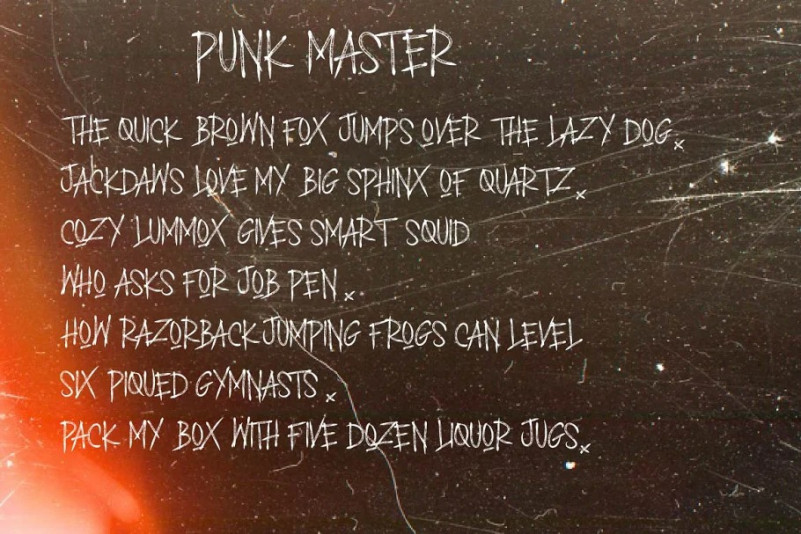 PUNK MASTER
THE QUICK BROWN FOX JUMPS OVER THE LAZY DOG.
JACKDAWS LOVE MY BIG SPHINX OF QUARTZ.
COZY LUMMOX GIVES SMART SQUID
WHO ASKS FOR JOB PEN.
HOW RAZORBACK-JUMPING FROGS CAN LEVEL
SIX PIQUED GYMNASTS.
PACK MY BOX WITH FIVE DOZEN LIQUOR JUGS.